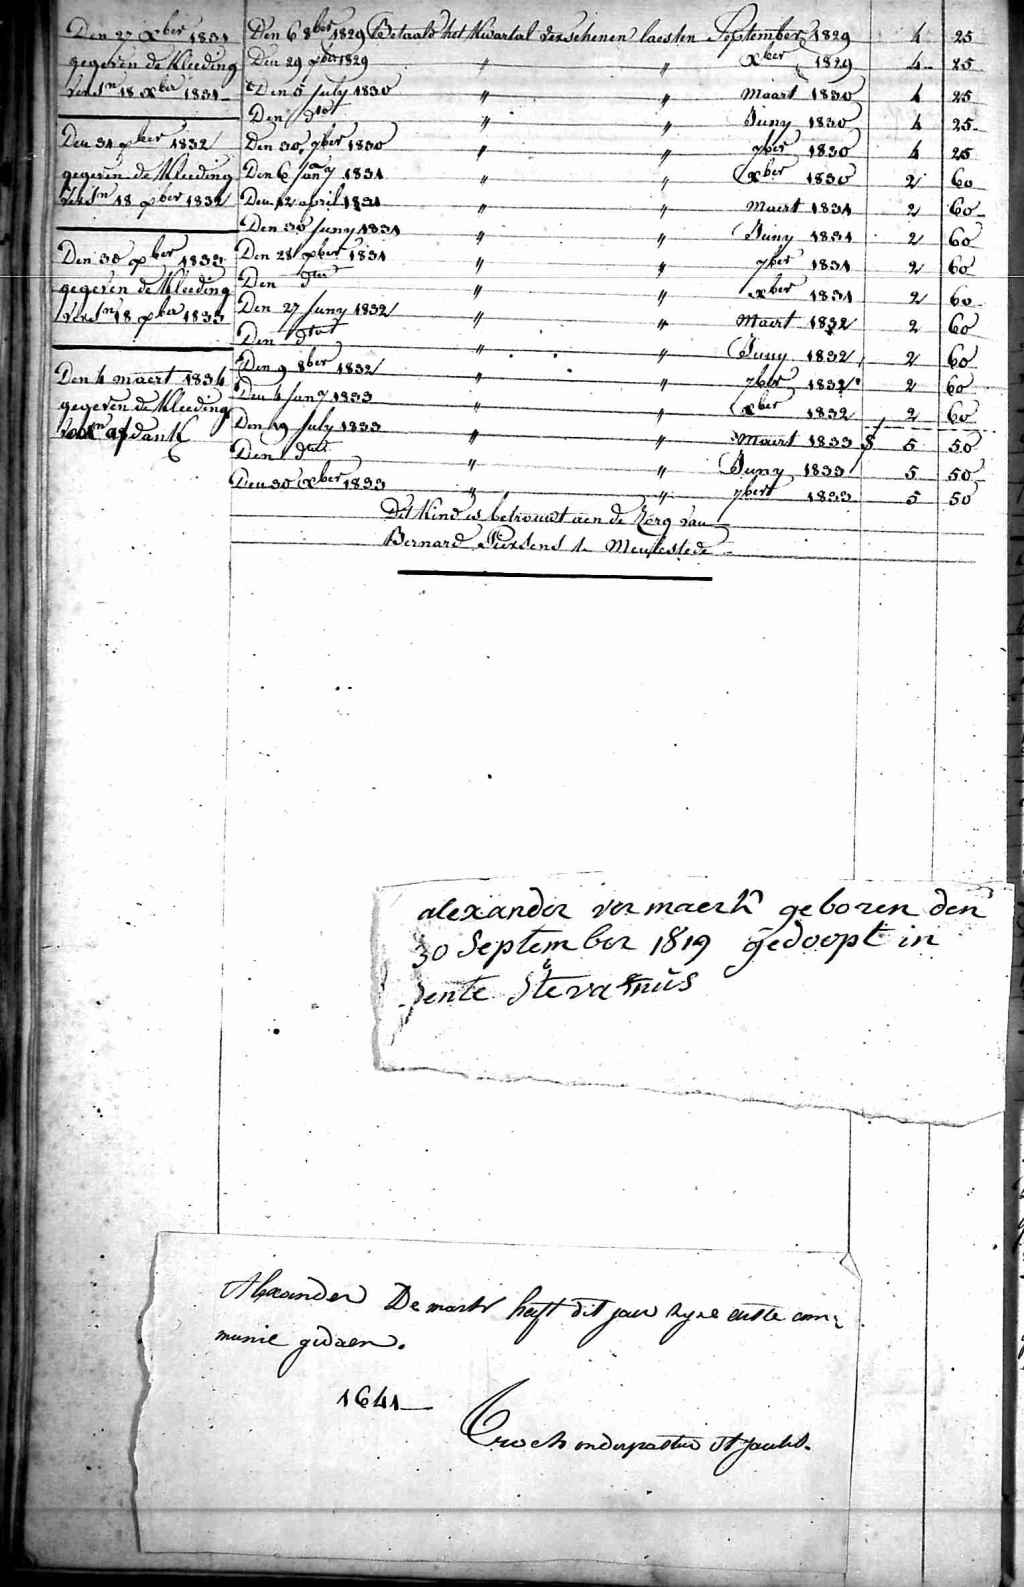 Den 27 xber 1831
gegeven de kleeding
versn 18 xber 1831
Den 31 xber 1832
gegeven de kleeding
versn 18 xber 1832
Den 30 xber 1833
gegeven de kleeding
versn 18 xber 1833
Den 4 maert 1834
gegeven de kleeding
voor afdank
Den 6 8ber 1829 Betaald het kwartal verschenen laesten September 1829 4 25
Den 29 xber 1829 " " xber 1829 4 25
Den 5 July 1830 " " Maart 1830 4 25
Den dtot " " Juny 1830 4 25
Den 30 7ber 1830 " " 7ber 1830 4 25
Den 6 Jany 1831 " " xber 1830 2 60
Den 12 april 1831 " " Maert 1831 2 60
Den 30 Juny 1831 " " Juny 1831 2 60
Den 28 xber 1831 " " 7ber 1831 2 60
Den dto " " xber 1831 2 60
Den 27 Juny 1832 " " Maert 1832 2 60
Den dtot " " Juny 1832 2 60
Den 9 8ber 1832 " " 7ber 1832 2 60
Den 4 Jany 1833 " " xber 1832 2 60
Den 19 July 1833 " " Maert 1833 5 50
Den dtot " " Juny 1833 5 50
Den 30 xber 1833 " " 7ber 1833 5 50
Dit kind is betrouwt aen de zorg van
Bernard te Meulestede
alexander vermaerk geboren den
30 September 1819 gedoopt in
sente stevanus
Alexander Demark heeft dit jaer zyne eerste com=
munie gedaen.
1641
onderpastor St jacobs.